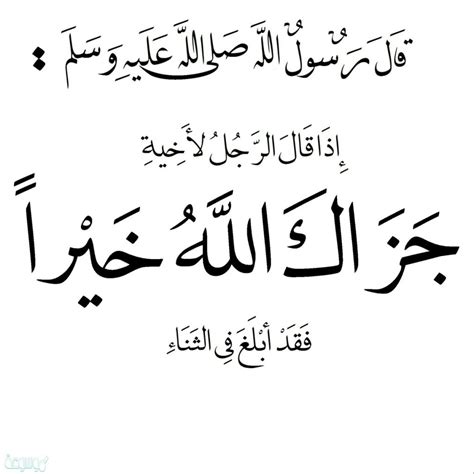 قَالَ رَسُولُ اللَّه صَلى اللَّه عَلَيْهِ وَسَلَم :
إِذَا قَالَ الرَّجُلُ لأَخِيةِ
جَزَاكَ اللَّهُ خَيْراً
فَقَدْ أَبْلَغَ فِى الثَنَاءِ